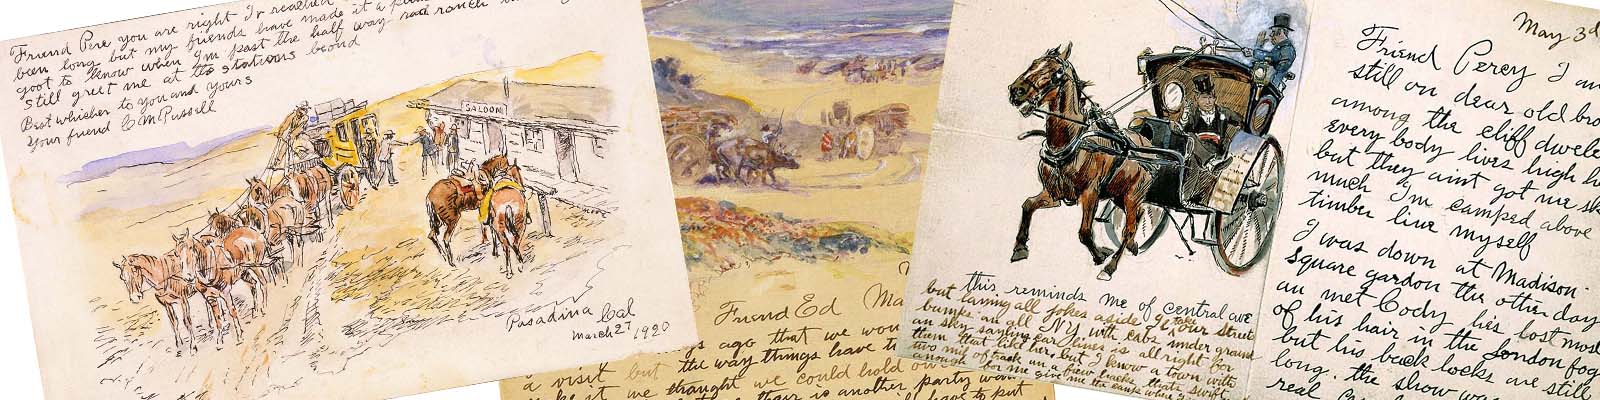 Friend Pere you are right Iv reached
been long but my friends have made it a
goot to know when I'm past the half way
still greet me at the stations beond
Best whishes to you and yours
your friend C M Russell
SALOON
Pasadina Cal
March 27 1920
Friend Ed Ma
ago that we wou
a visit but the way things have t
we thought we could hold
is another party
to put
this reminds me of central ave
but laming all jokes aside
bunks an all NY with cabs under ground
an sky saying car lines is all right for
them that like her but I know a town with
two mi of track an a few hacks thats swift
anough for me give me the
May 3d
Friend Percy I am
still on dear old bro
among the cliff dwele
every body lives high h
but they aint got me sk
much I'm camped above
timber line myself
I was down at Madison
Square garden the other day
an met Cody hes lost most
of his hair in the London fog
but his back locks are still
long. the show was
real